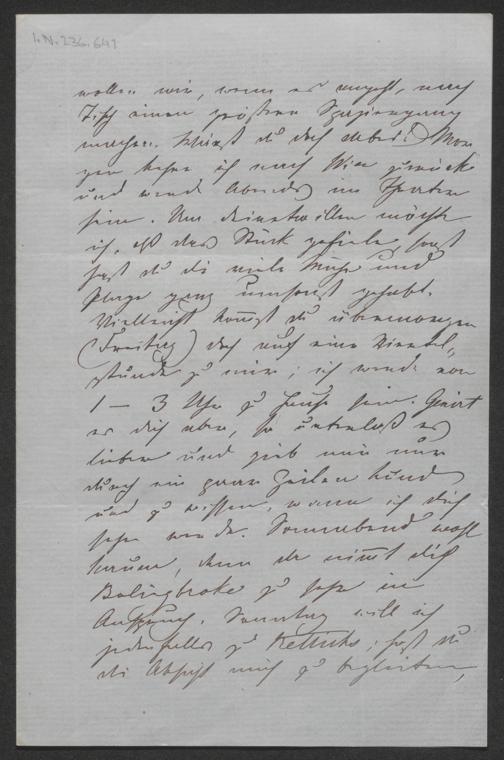 I.N. 236.641
wollen wir, wenn es angeht, nach
Tisch einen größern Spaziergang
machen. Wärest du doch dabei! Mor
gen kehre ich nach Wien zurück
und werde Abends im Theater
sein. Um deinetwillen möchte
ich, daß das Stück gefiele, sonst
hast du die viele Mühe und
Plage ganz umsonst gehabt.
Vielleicht kommst du übermorgen
(Freitag) doch auf eine Viertel-
stunde zu mir; ich werde von
1 – 3 Uhr zu Hause sein. Genirt
es dich aber, so unterlaß es
lieber und gieb mir nur
durch ein paar Zeilen kund
und zu wissen, wann ich dich
sehen werde. Sonnabend wohl
kaum, denn da nimmt dich
Bolingbroke zu sehr in
Anspruch. Sonntag will ich
jedenfalls zu Rettichs; hast du
die Absicht mich zu begleiten,